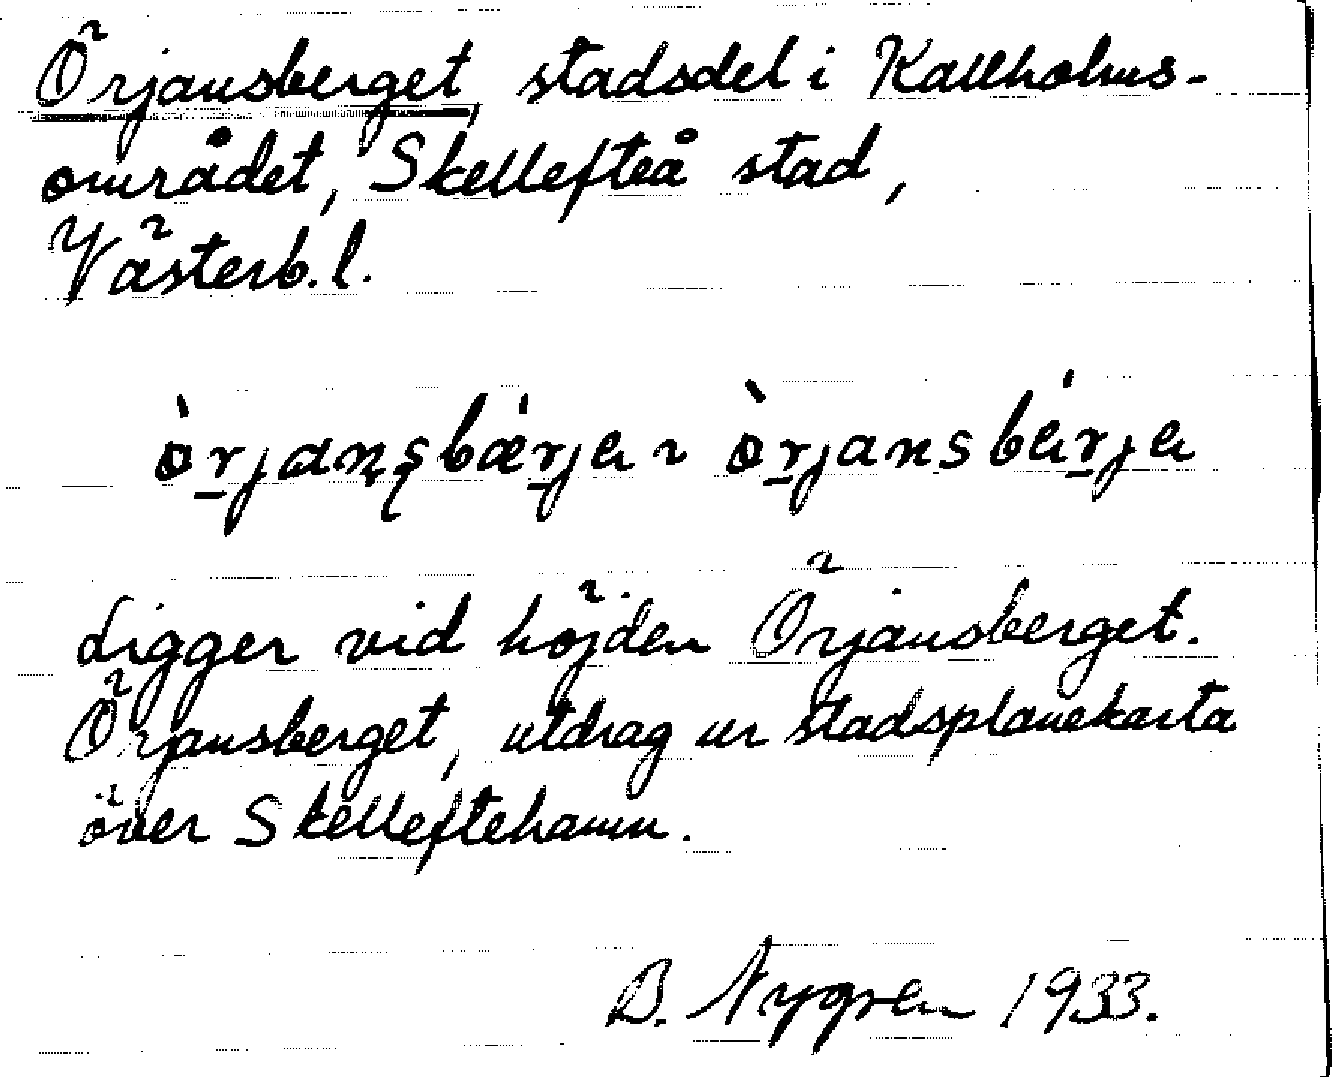 Örjansberget, stadsdel i Kallholms-
området, Skellefteå stad,
Västerb. l.
Ligger vid höjden Örjansberget.
Örjansberget, utdrag ur stadsplanekarta
över Skelleftehamn.
B. Nygren 1933.